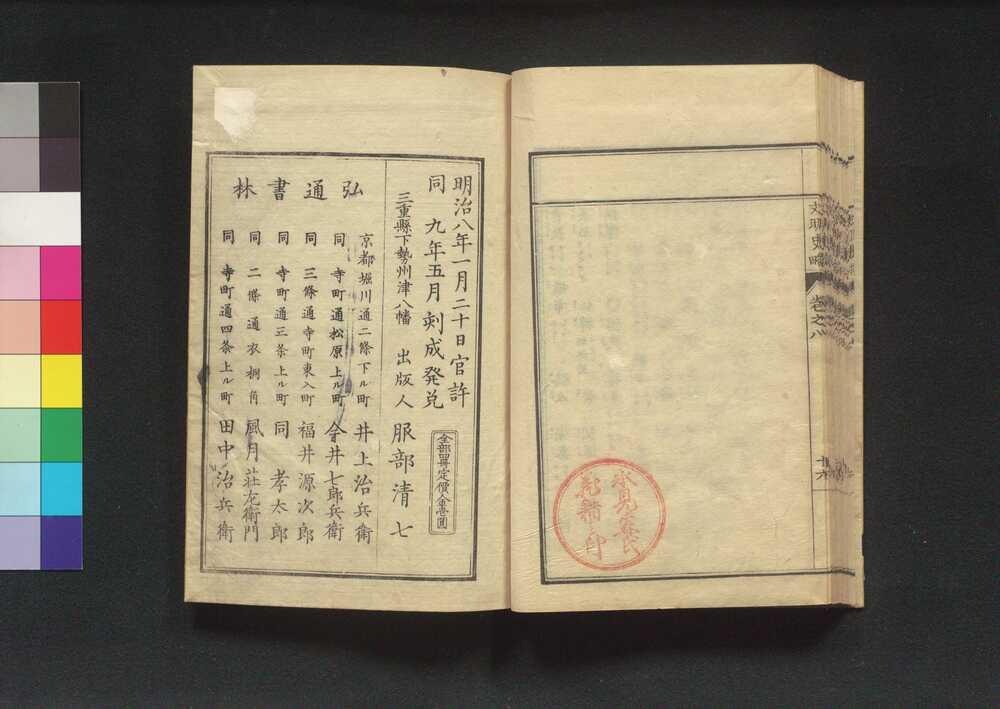 文明史略
巻之八
十六
氷見家氏
蔵籍之印
明治八年一月二十日官許
同九年五月刻成発兌
三重縣下勢州津八幡 出版人 服部清七
全部四冊定價金壹圓
弘通書林
京都堀川通二條下ル町 井上治兵衛
同 寺町通松原上ル町 今井七郎兵衛
同 三條通寺町東入町 福井源次郎
同 寺町通三条上ル町 同孝太郎
同 二條通衣棚角 風月荘左衛門
同 寺町通四条上ル町 田中治兵衛